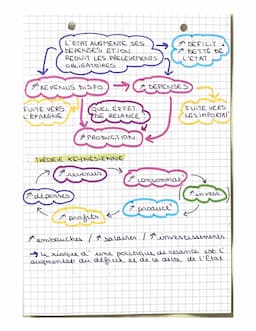 L'ETAT AUGMENTE SES
DEPENSES ET/ON
REDUIT LES PRELEVEMENTS
OBLIGATOIRES
↗ DEFICIT
↗ DETTE DE
L'ETAT
↗ REVENUS DISPO
↗ DEPENSES
FUITE VERS
L'EPARGNE
QUEL EFFET
DE RELANCE
FUITE VERS
LES IMPORTAT°
↗ PRODUCTION
THEORIE KEYNESIENNE
↗ revenus
↗ consommat°
↗ invest
↗ product°
↗ profits
↗ dépenses
↗ embauches / ↗ salaires / ↗ investissements
→ le risque d'une politique de relance est l'
augmentat° du déficit et de la dette de l'Etat